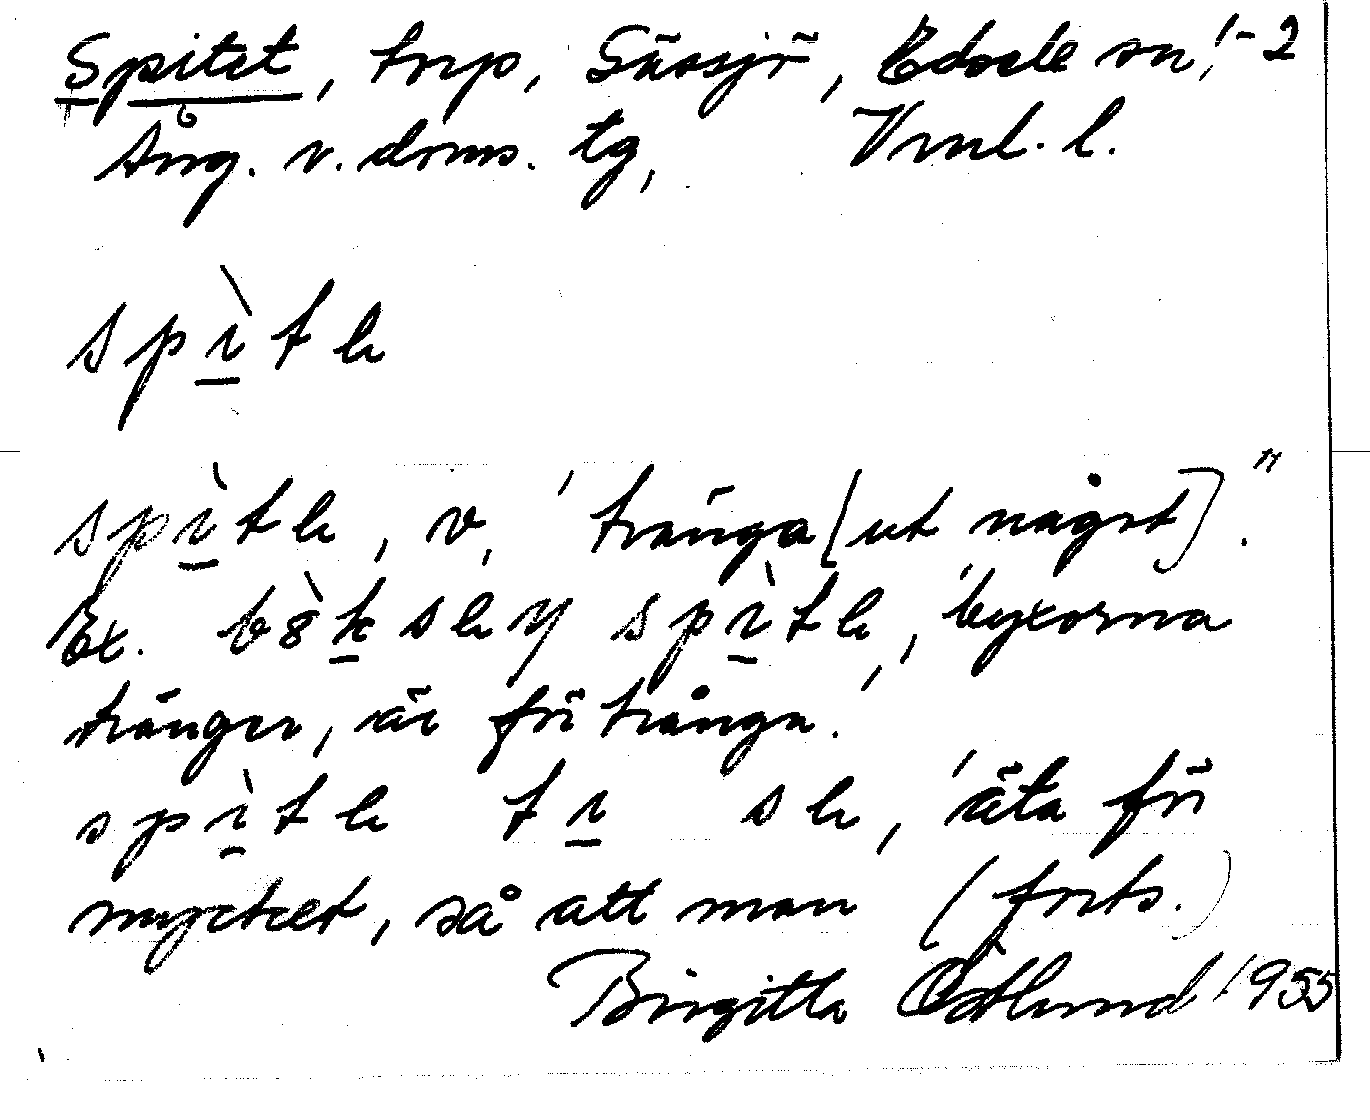 Spitet, torp, Säxsjö, Edsele sn! - 2
Ång. v. doms. tg, Vrml. l.
spìta
spìta, v, 'tränga (ut något)'."
Ex. spìta, 'byxorna
tränger, är för trånga.'
spìta tı sa, 'äta för
mycket, så att man (forts.)
Birgitta Östlund 1955